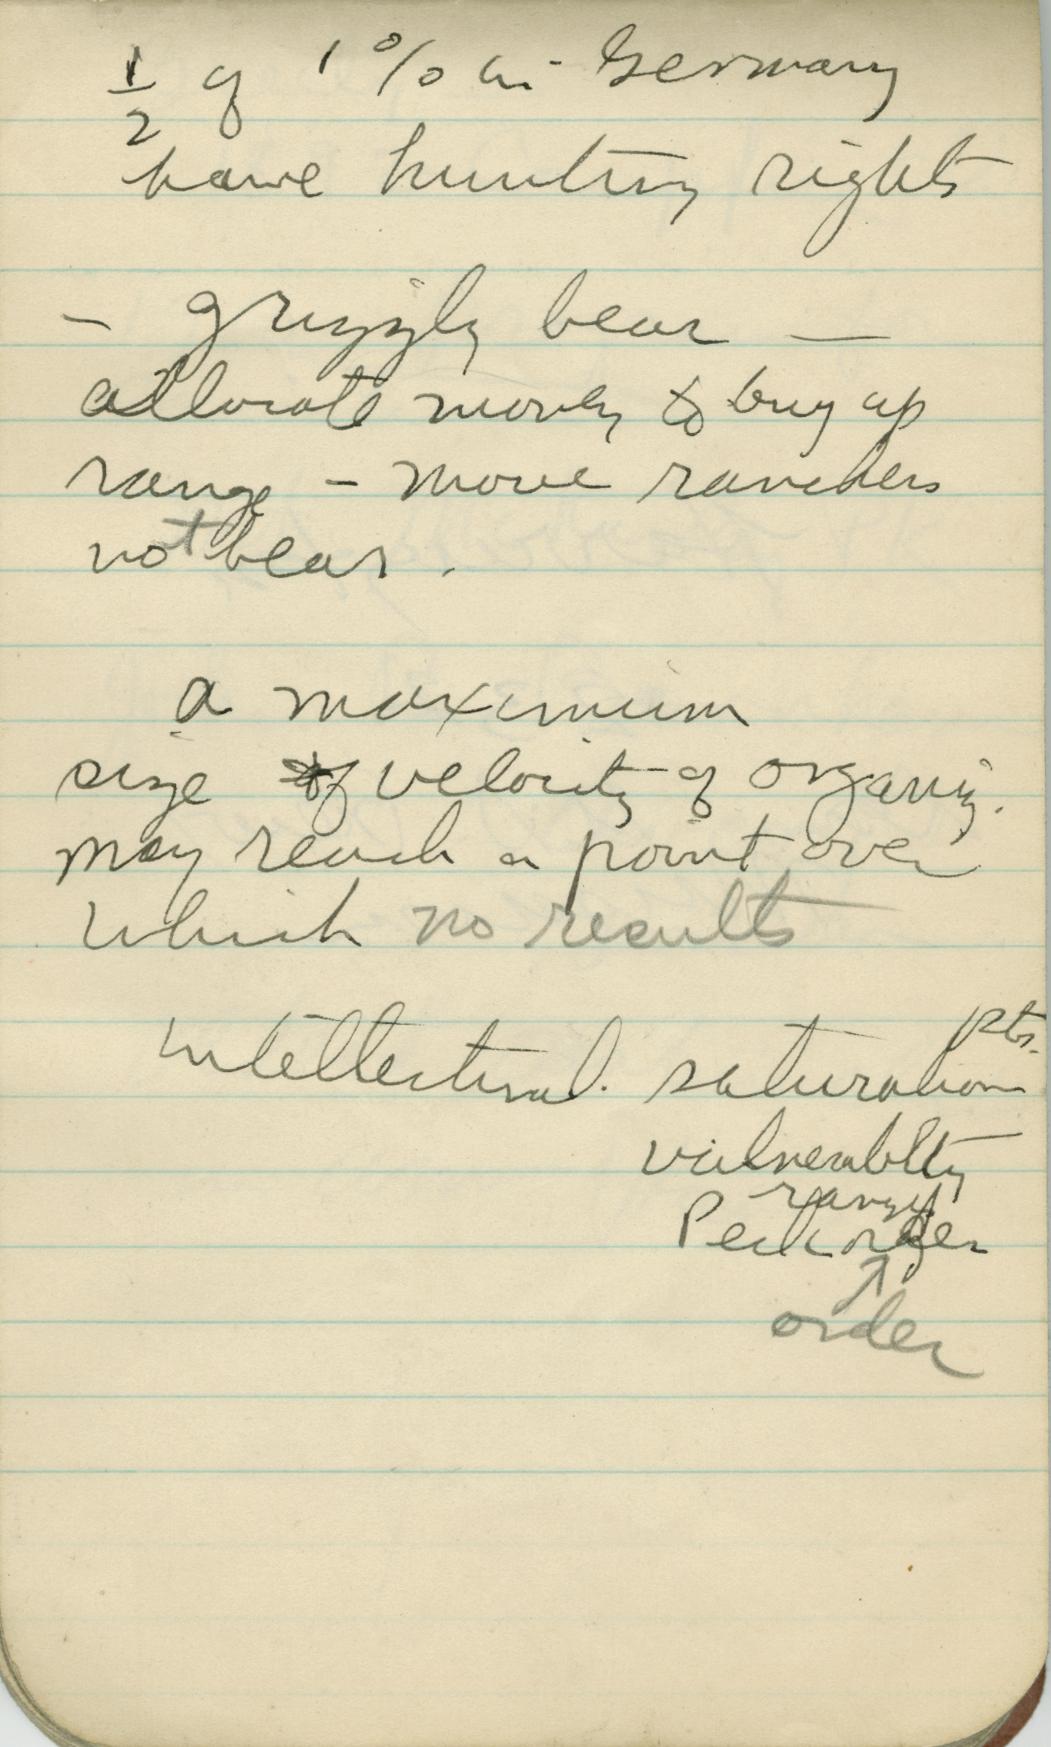 1/2 of 1% in Germany
have hunting rights
- grizzly bear -
allocate money to buy up
range - move ranchers
not bear.
a maximum
size of velocity of organiz.
may reach a point over
which no results
intellectual. saturation pts.
vulnerablity
range
Peck order
order